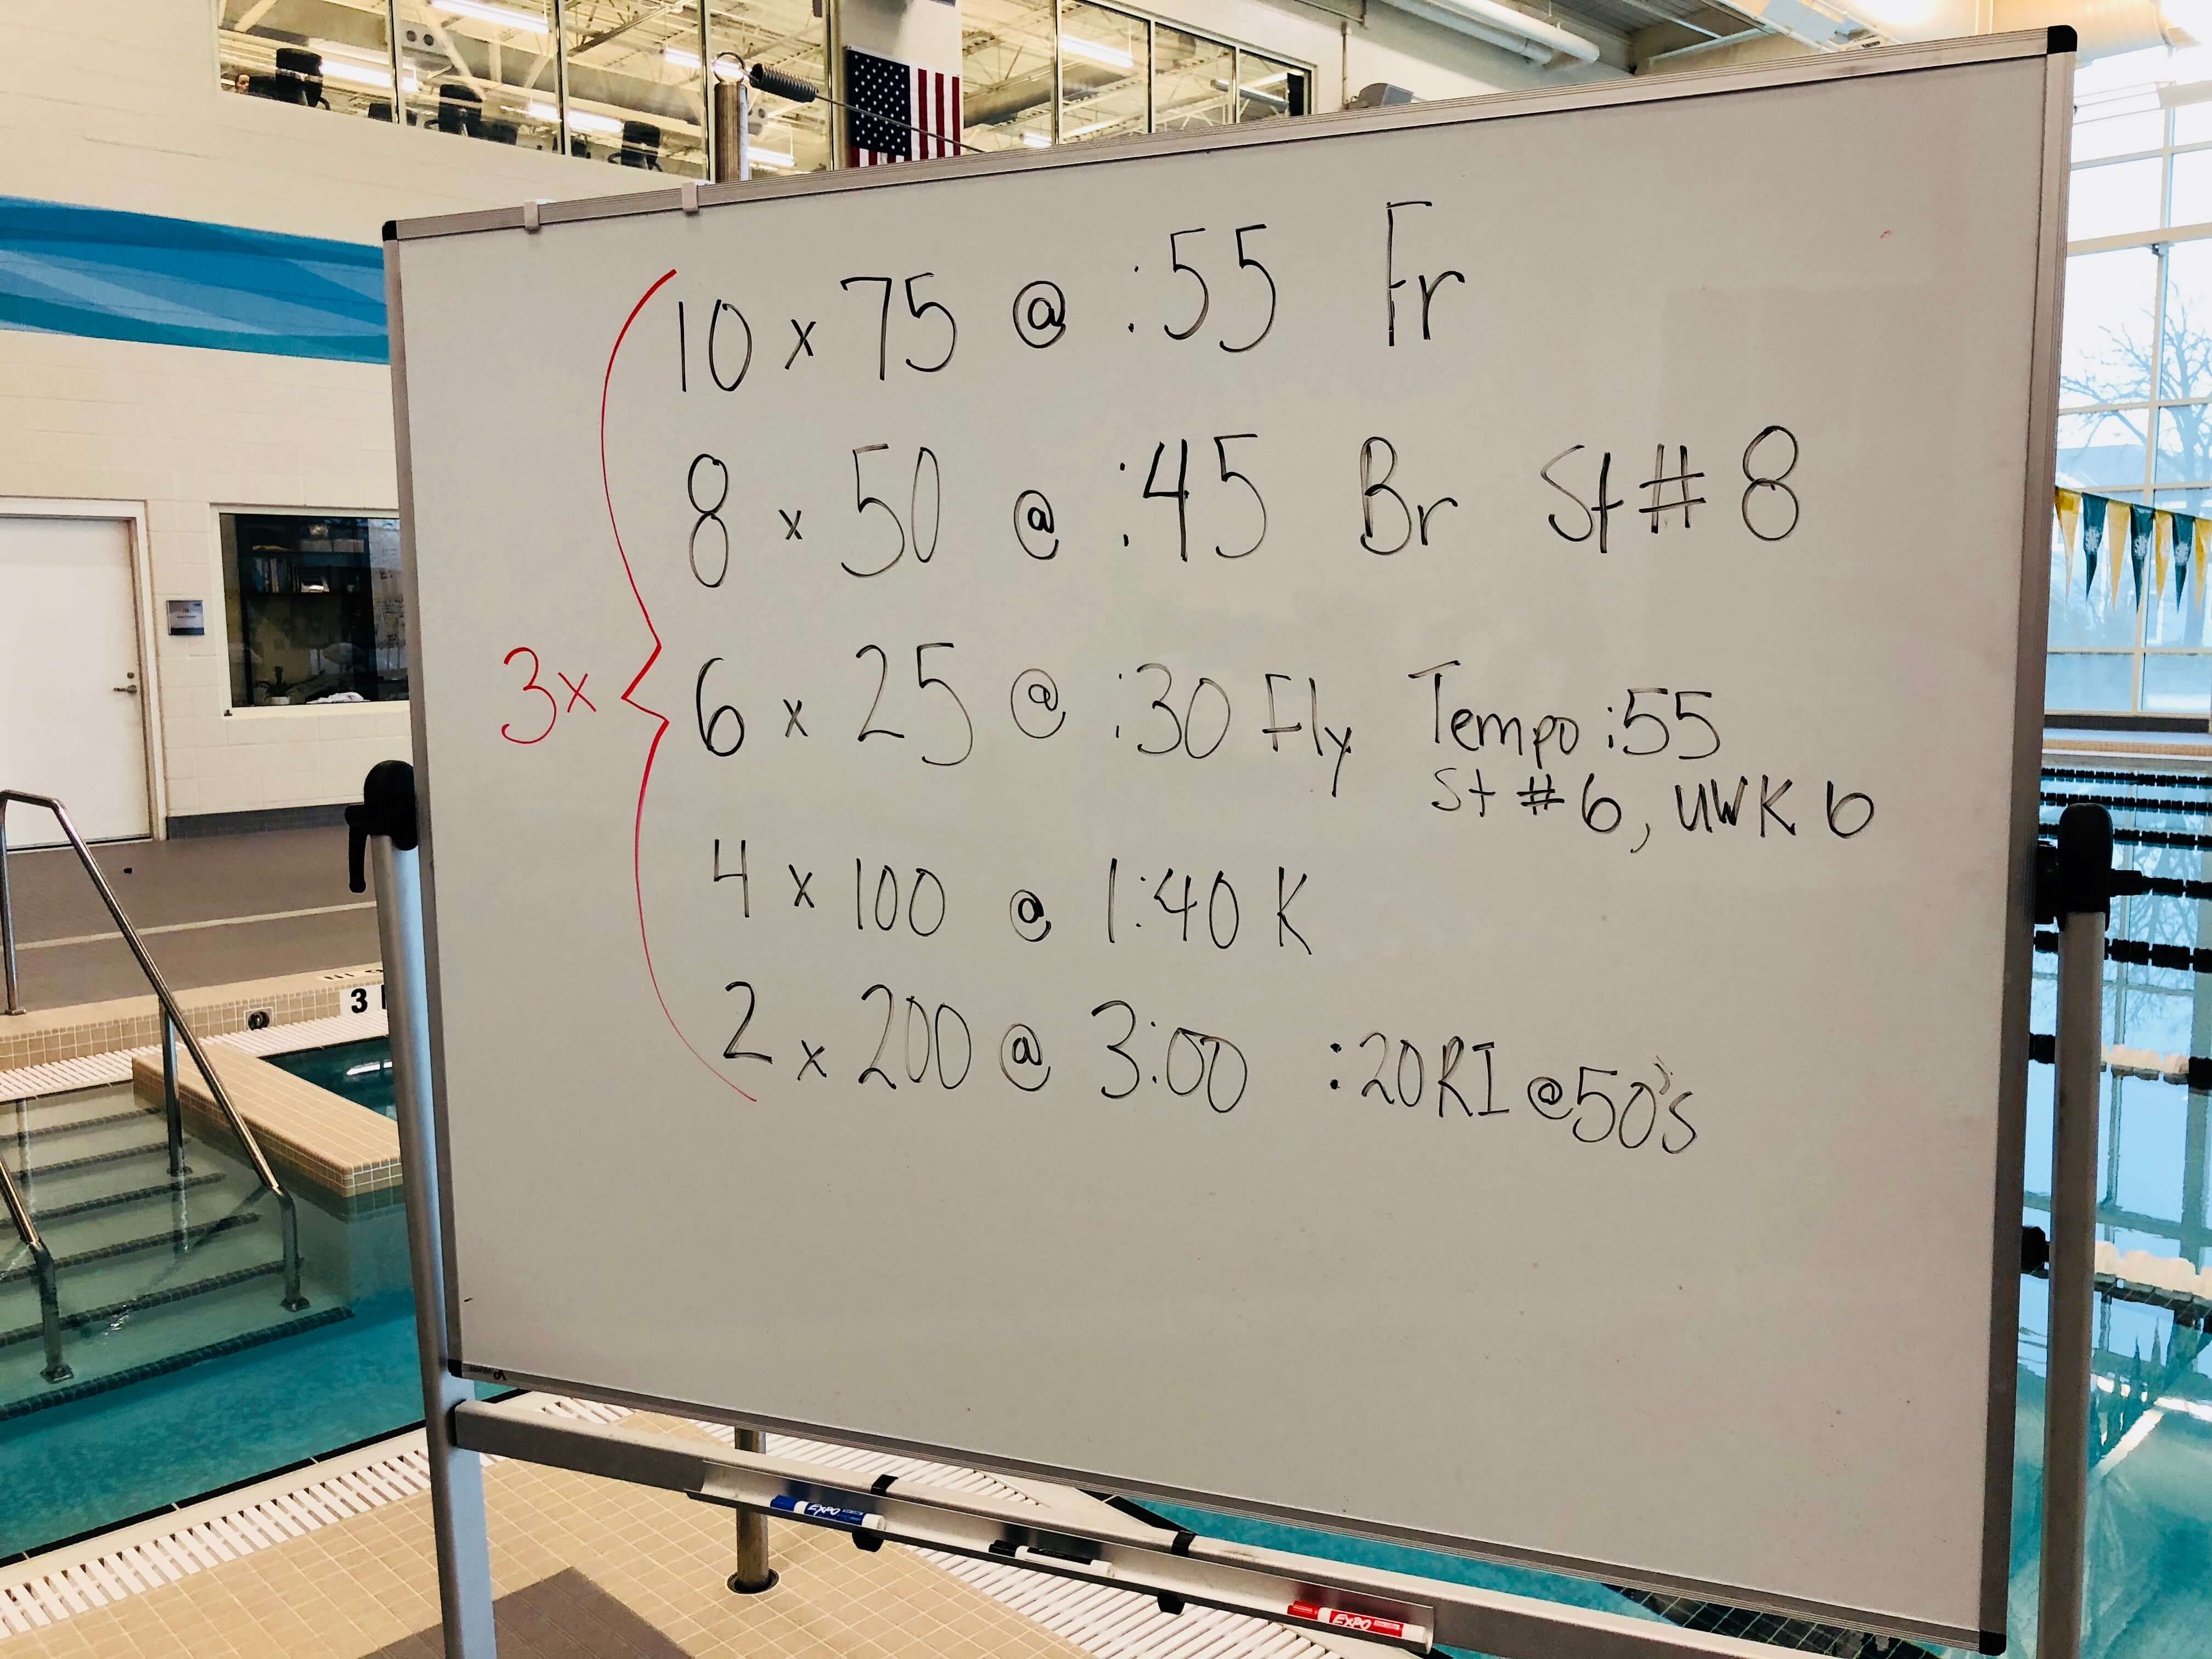 10 x 75 @ :55 Fr
8 x 50 @ :45 Br St # 8
3x
6 x 25 @ :30 Fly Tempo :55
St # 6, UWK 6
4 x 100 @ 1:40 K
2 x 200 @ 3:00 :20 RI @ 50's
3
EXPO
EXPO